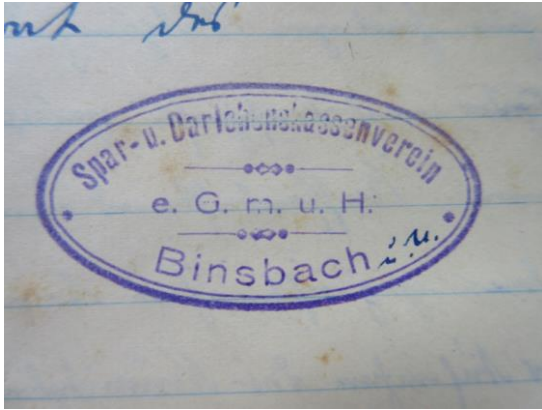 des
Spar- u. Darlehenskassenverein
e. G. m. u. H.
Binsbach